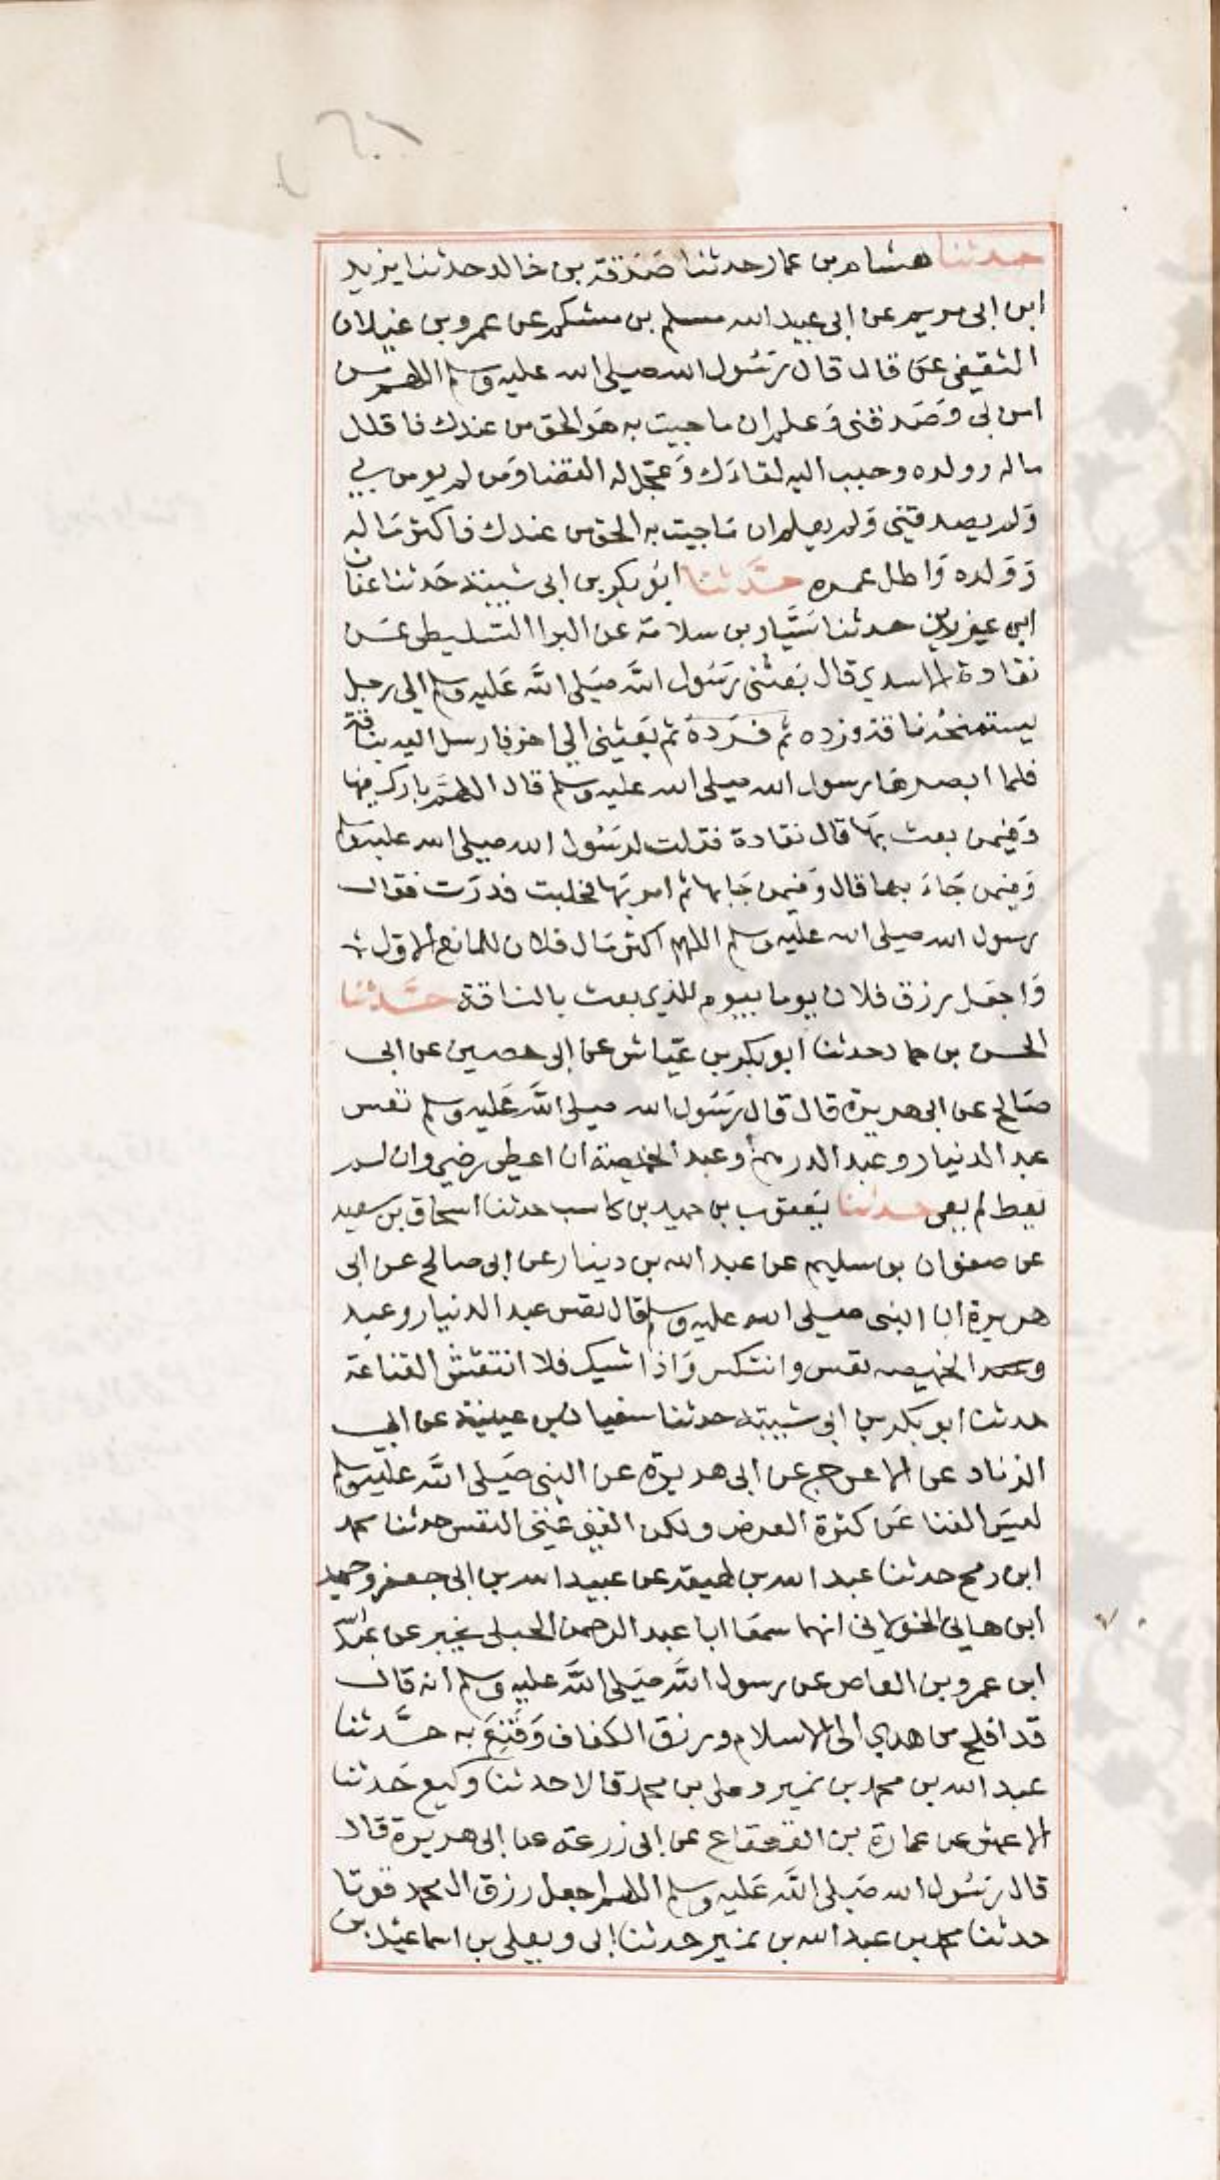 حدثنا هشام بن عمار حدثنا صَدَقة بن خالد حدثنا يزيد
ابن ابى مريم عن ابى عبيد الله مسلم بن مشكم عن عمرو بن غيلان
الثقيفى عن قال قال رَسُول الله صلى الله عليه وسلم اللهم من
امن بى وَصَدقنى وَعلم ان ما جيت به هَو الحق من عندك فاقلل
ماله وولده وحبب اليه لقاءَك وَعجّل له القضا وَمن لم يومن بي
وَلم يصدقينى وَلم يعلم ان مَا جيت به الحق من عندك فاكثر مَاله
وَوَلده وَاطل عمره حدَّثنا ابَو بكر بن ابى شيبة حَدثنا عفان
ابن عزيلان حدثنا سَيَّار بن سلامة عن البرا التسليطى عَن
نقادة الاسدي قال بَعثنى رَسَول اللَّه صَلى اللَّه عَليه وسلم الى رجل
يستمنحُه ناقة وزده ثم فَرَدهَ ثم بَعثنى الى اخر فارسل اليه بناقة
فلما ابصرهَا رسول الله صلى الله عليه وسلم قال اللهمَّ بارك فيها
وَفيمن بعث بهَا قال نقادة فقلت لرَسُول الله صلى الله عليه وسلم
وَفيمن جَاءَ بها قال وَفيمن جَا بها ثم امر بَها فحلبت فدرَت فقال
رسول الله صلى الله عليه وسلم اللهم اكثر مَال فلان للمانع الاوَل
وَاجعَل رزق فلان يوما بييوم للذي بعث بالناقة حدَّثنا
الحسن بن حماد حدثنا ابو بكر بن عَياش عن ابى حصين عن ابى
صَالح عن ابى هريرة قال قال رَسَول الله صلى اللَّه عَليه وسلم تعس
عبد الدنيار وعبد الدرهم وعبد الخميصة ان اعطى رضي وان لم
يعط لم يعى حدثنا يَعقوب بن حميد بن كاسب حدثنا اسحاق بن سعيد
عن صفوان بن سليم عن عبد الله بن دينار عن ابى صالح عن ابى
هريرة ان النبى صلى الله عليه وسلم قال تعس عبد الدنيار وعبد
وعبد الخميصه تعس وانتكس وَاذا شيك فلا انتقش القناعة
حدثنا ابو بكر بن ابى شيبة حدثنا سفيان بن عيينة عن ابي
الزناد عن الاعرج عن ابى هريرة عن النبى صَلى اللَّه عليه وسلم
ليسَ الغنا عَن كثرة العرض ولكن الغنى غنى النفس حدثنا محمد
ابن رمح حدثنا عبد الله بن لهيعة عن عبيد الله بن ابى جعفر وحميد
ابن هاني الخولانى انهما سمعَا ابا عبد الرحمن الحبلى يخبر عن عبد الله
ابن عمرو بن العاص عن رسول اللَّه صَلى اللَّه عليه وسلم انه قال
قد افلح من هدي الى الاسلام ورزق الكفاف وَقَنِعَ به حدَّثنا
عبد الله بن محمد بن نمير وعلى بن محمد قالا حدثنا وكيع حَدثنا
الاعمش عن عمارَة بن القعقاع عن ابى زرعة عن ابى هريرة قال
قال رَسُول الله صَلى اللَّه عَليه وسلم اللهم اجعل رزق ال محمد قوتا
حدثنا محمد بن عبد الله بن نمير حدثنا ابى ويعلى بن اسماعيل بن